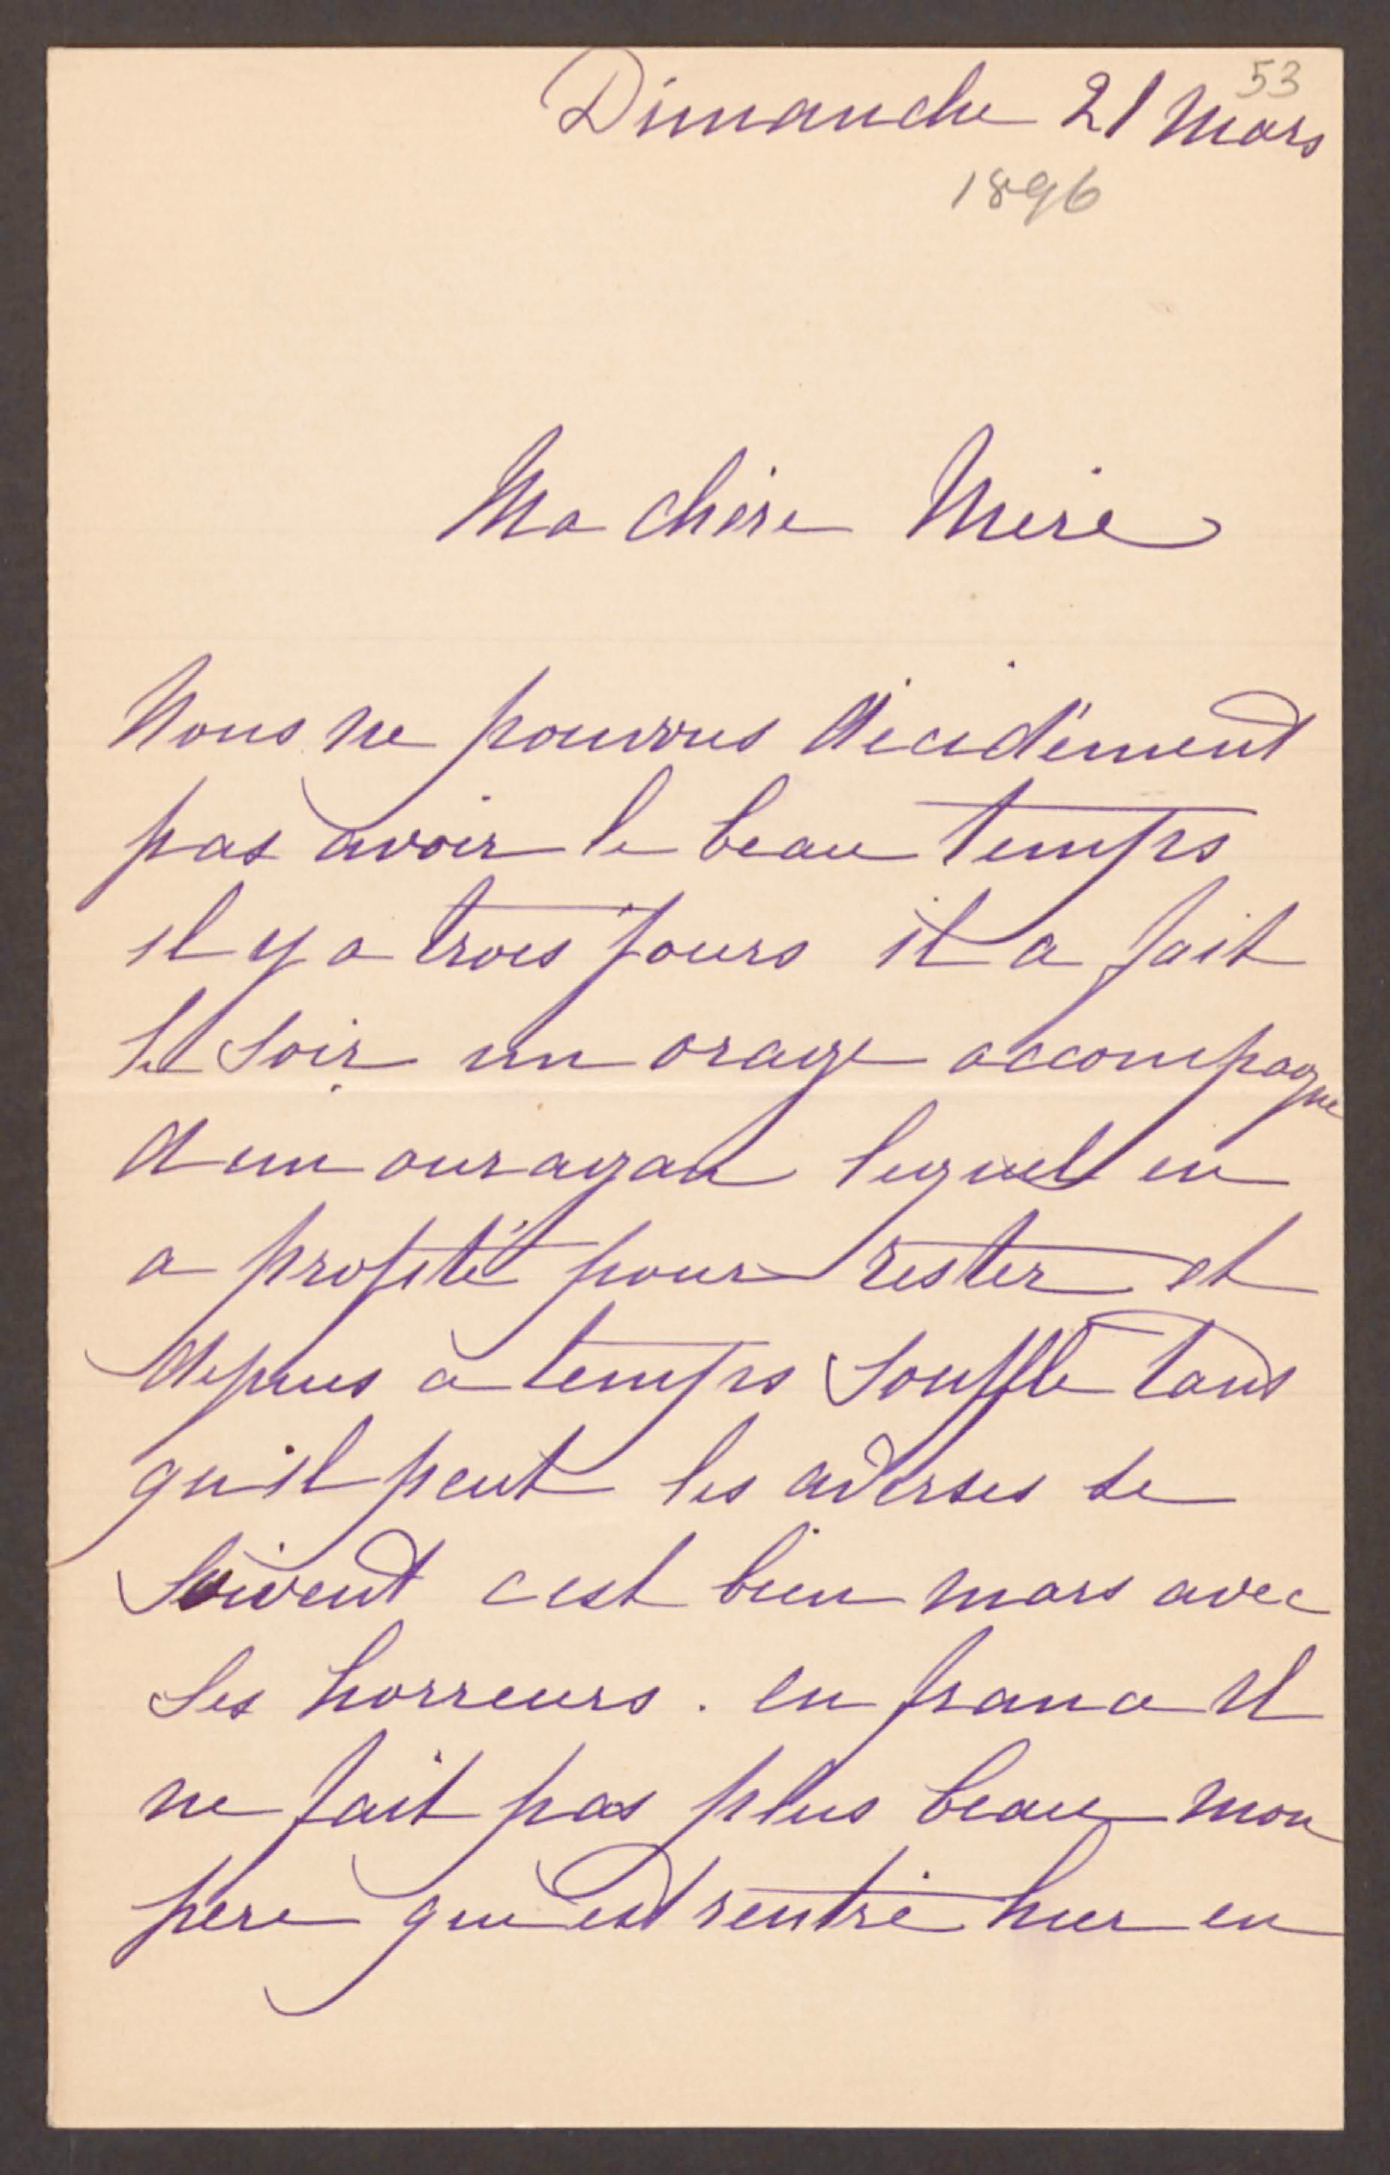 53
Dimanche 21 Mars
1896
Ma chère Mère
Nous ne pouvons décidément
pas avoir le beau temps
il y a trois jours il a fait
le soir un orage accompagne
d un ouragan lequel en
a profité pour rester et
depuis ce temps souffle tant
qu'il peut les averses se
suivent c est bien mars avec
ses horreurs. en france il
ne fait pas plus beau mon
père qui est rentré hier en